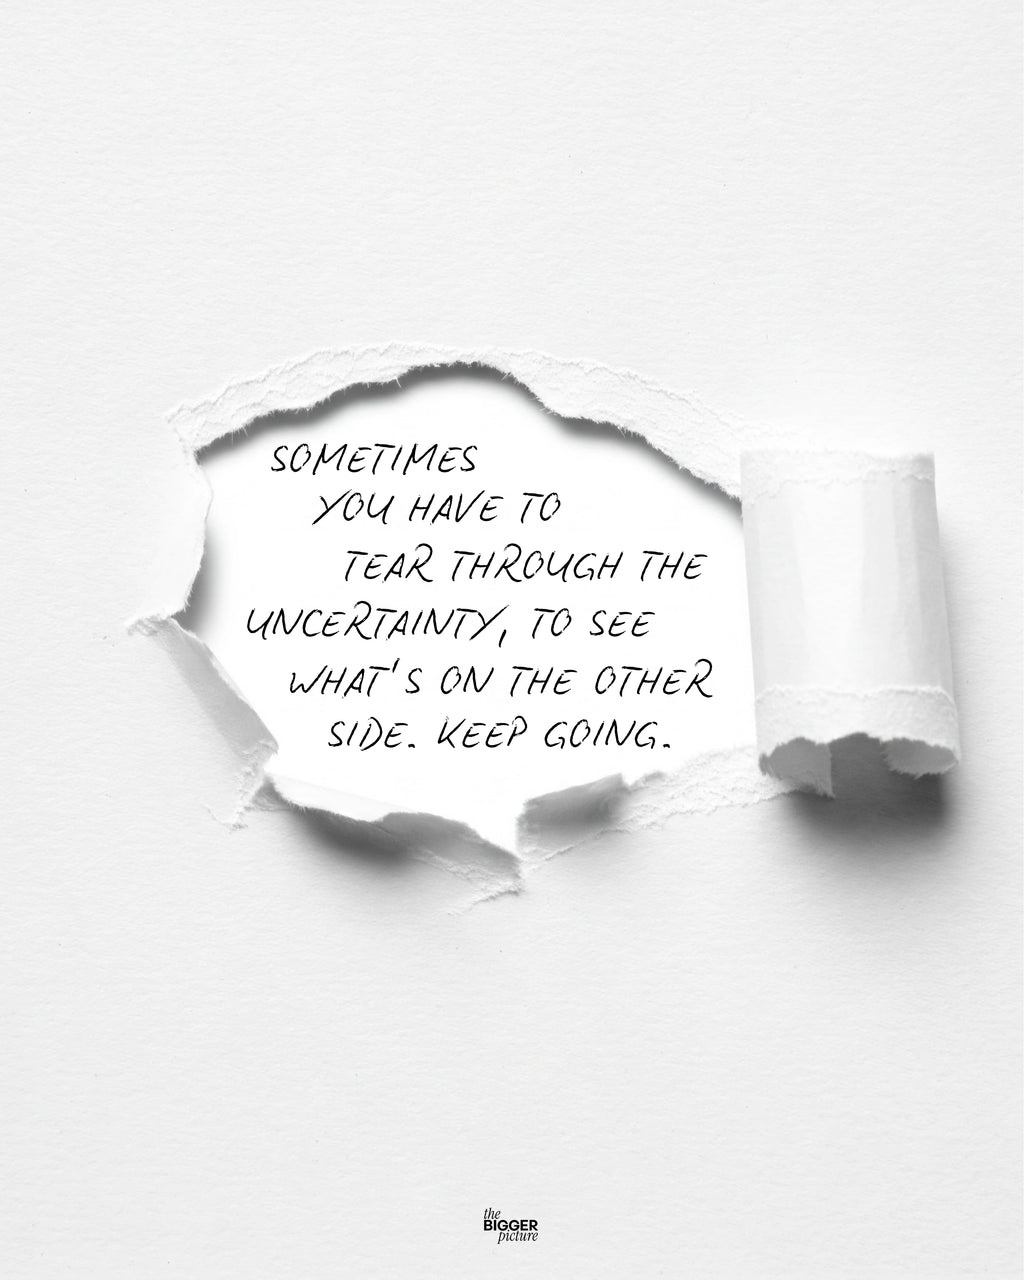 SOMETIMES
YOU HAVE TO
TEAR THROUGH THE
UNCERTAINTY, TO SEE
WHAT'S ON THE OTHER
SIDE. KEEP GOING.
the
BIGGER
picture